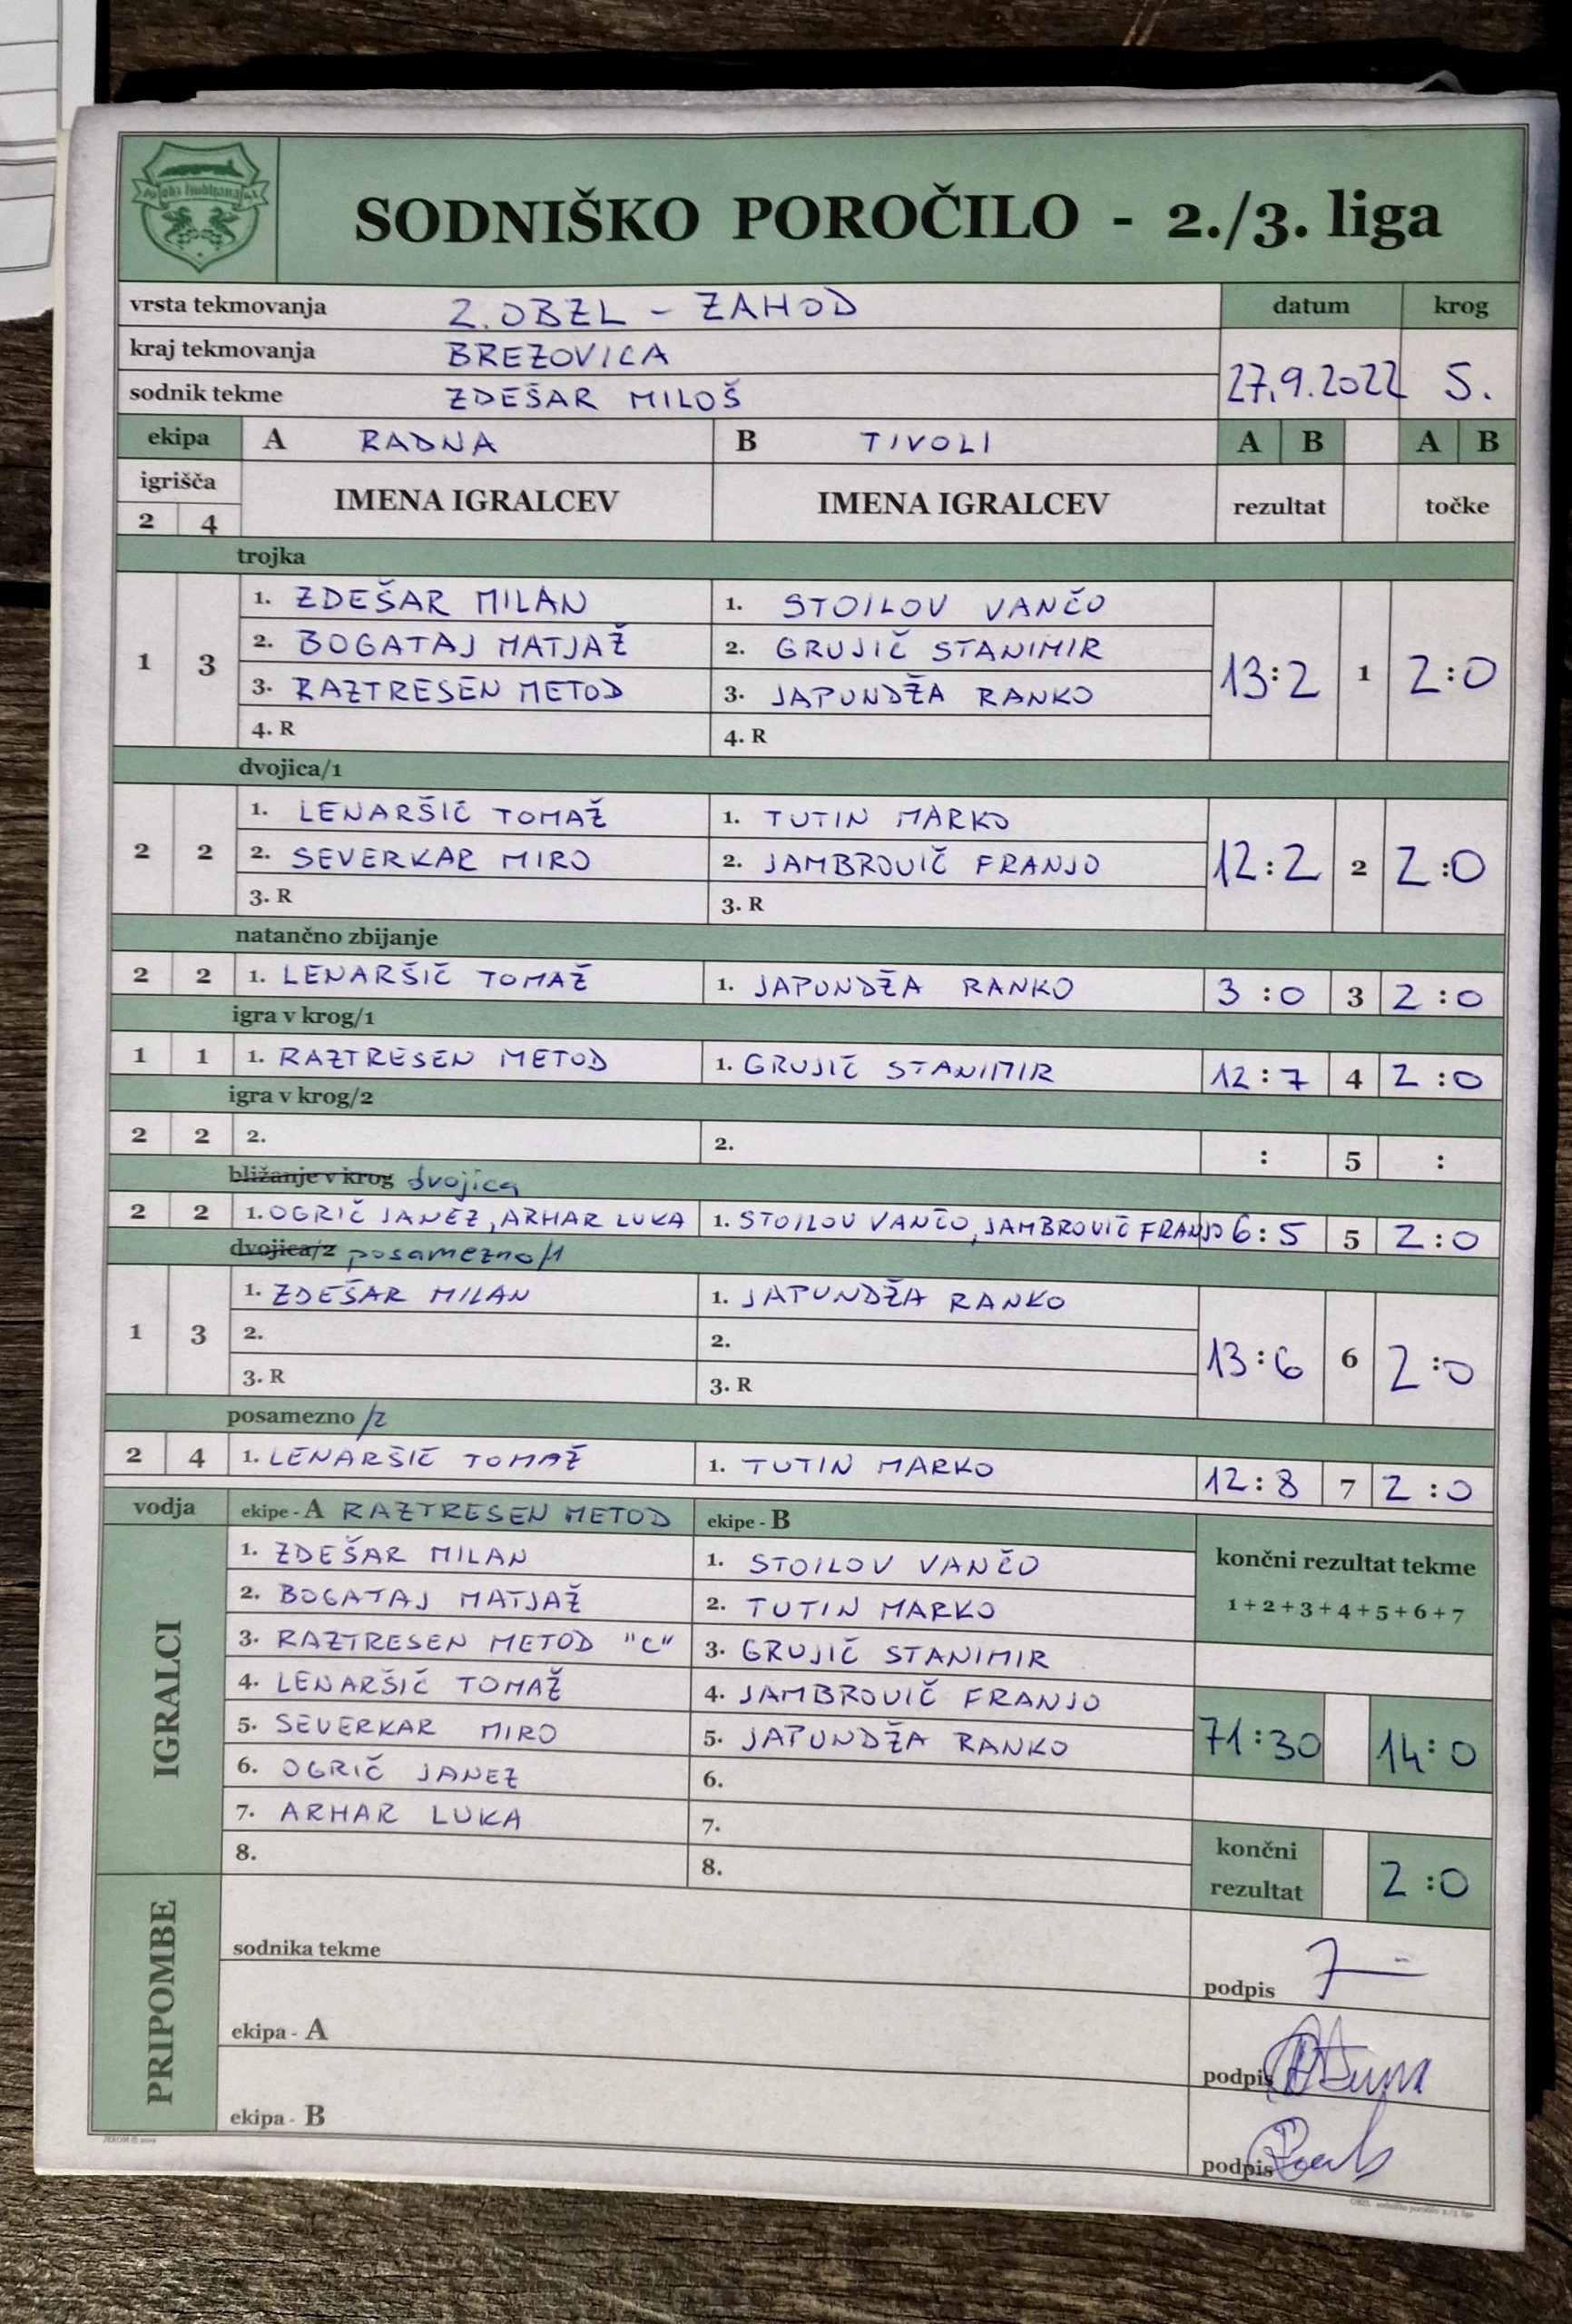 obz ljubljana
SODNIŠKO POROČILO - 2./3. liga
vrsta tekmovanja 2. OBZL - ZAHOD datum krog
kraj tekmovanja BREZOVICA
sodnik tekme ZDEŠAR MILOŠ 27.9.2022 5.
ekipa A RADNA B TIVOLI A B A B
igrišča IMENA IGRALCEV IMENA IGRALCEV rezultat točke
2 4
trojka
1. ZDEŠAR MILAN 1. STOILOV VANČO
2. BOGATAJ MATJAŽ 2. GRUJIČ STANIMIR
1 3 3. RAZTRESEN METOD 3. JAPUNDŽA RANKO 13:2 1 2:0
4. R 4. R
dvojica/1
1. LENARŠIČ TOMAŽ 1. TUTIN MARKO
2 2 2. SEVERKAR MIRO 2. JAMBROVIČ FRANJO 12:2 2 2:0
3. R 3. R
natančno zbijanje
2 2 1. LENARŠIČ TOMAŽ 1. JAPUNDŽA RANKO 3:0 3 2:0
igra v krog/1
1 1 1. RAZTRESEN METOD 1. GRUJIČ STANIMIR 12:7 4 2:0
igra v krog/2
2 2 2. 2. : 5 :
bližanje v krog dvojica
2 2 1. OGRIČ JANEZ, ARHAR LUKA 1. STOILOV VANČO, JAMBROVIČ FRANJO 6:5 5 2:0
dvojica/2 posamezno/1
1. ZDEŠAR MILAN 1. JAPUNDŽA RANKO
1 3 2. 2. 13:6 6 2:0
3. R 3. R
posamezno /2
2 4 1. LENARŠIČ TOMAŽ 1. TUTIN MARKO 12:8 7 2:0
vodja ekipe - A RAZTRESEN METOD ekipe - B
IGRALCI
1. ZDEŠAR MILAN 1. STOILOV VANČO končni rezultat tekme
2. BOGATAJ MATJAŽ 2. TUTIN MARKO 1+2+3+4+5+6+7
3. RAZTRESEN METOD "C" 3. GRUJIČ STANIMIR
4. LENARŠIČ TOMAŽ 4. JAMBROVIČ FRANJO
5. SEVERKAR MIRO 5. JAPUNDŽA RANKO 71:30 14:0
6. OGRIČ JANEZ 6.
7. ARHAR LUKA 7. končni
8. 8. rezultat 2:0
PRIPOMBE
sodnika tekme podpis
ekipa - A podpis
ekipa - B podpis
OBZL sodniško poročilo 2./3. liga